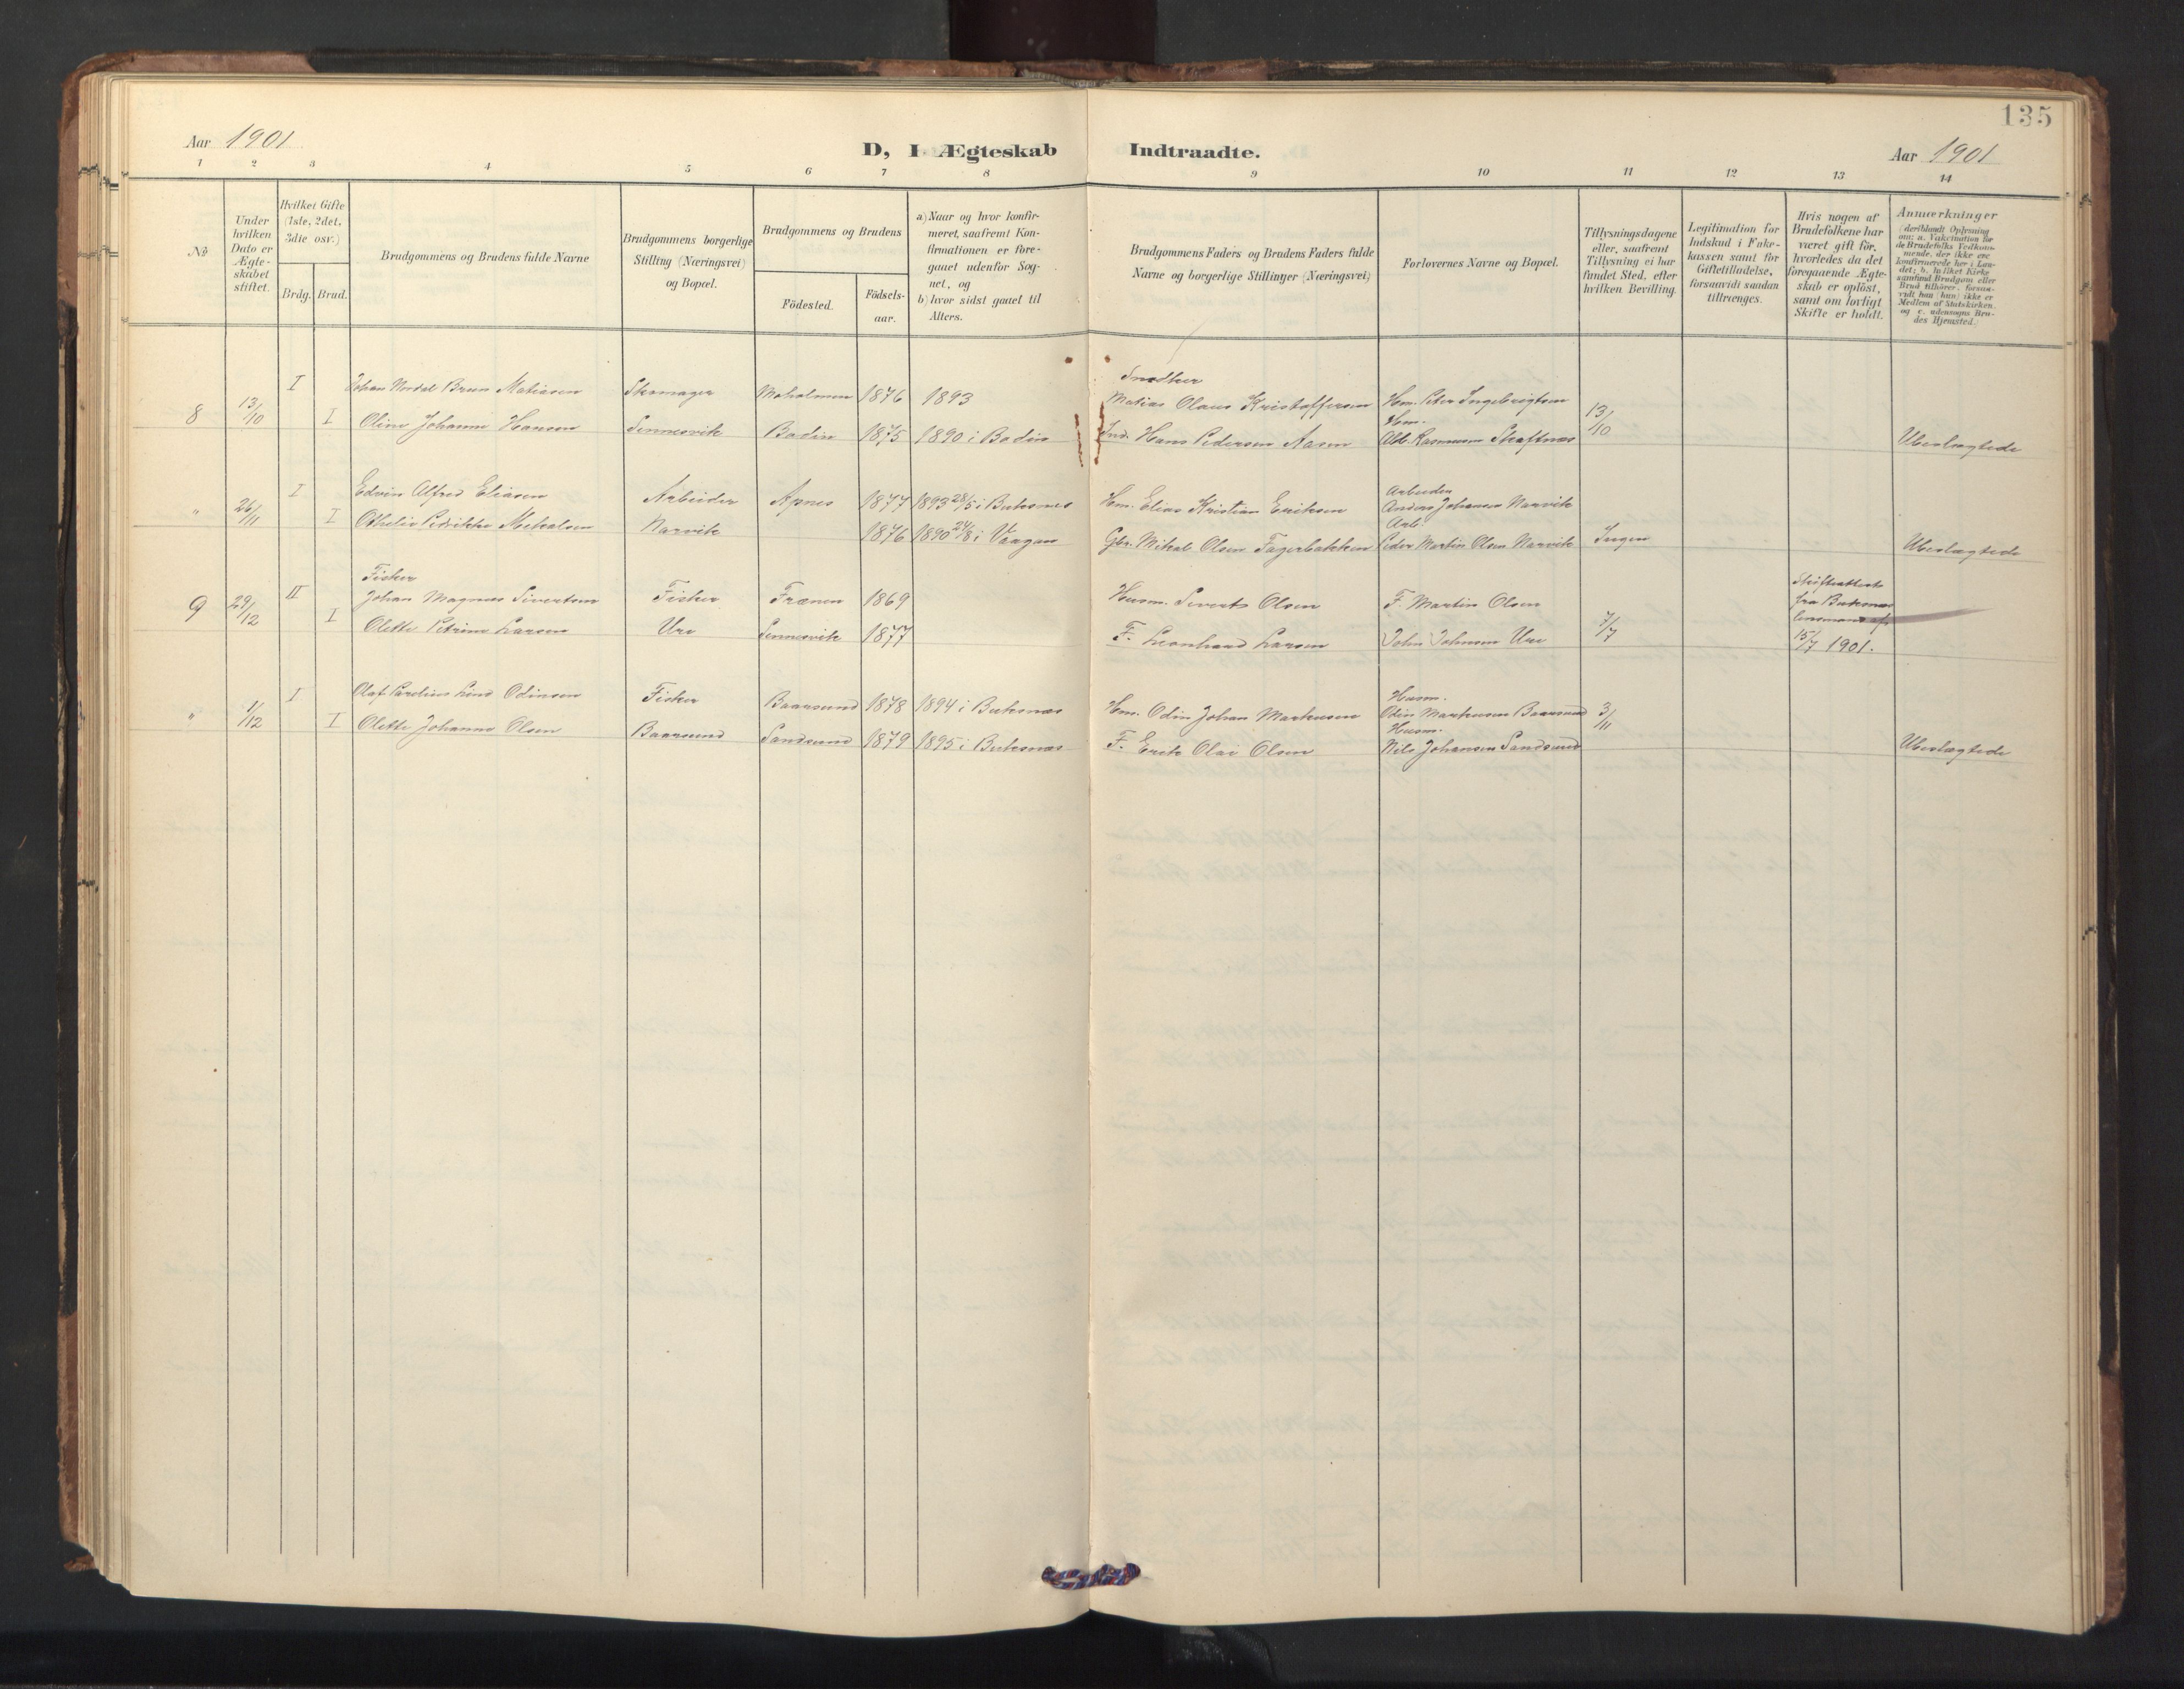 135
Aar 1901
D, I Ægteskab Indtraadte.
Aar 1901
1 2 3 4 5 6 7 8 9 10 11 12 13 14
No.
Under hvilken Dato er Ægteskabet stiftet.
Hvilket Gifte (1ste, 2det, 3die osv.)
Brdg. Brud.
Brudgommens og Brudens fulde Navne
Brudgommens borgerlige Stilling (Næringsvei) og Bopæl.
Brudgommens og Brudens
Födested.
Födsels-aar.
a) Naar og hvor konfir-
meret, saafremt Kon-
firmationen er fore-
gaaet udenfor Sog-
net, og
b) hvor sidst gaaet til
Alters.
Brudgommens Faders og Brudens Faders fulde
Navne og borgerlige Stillinger (Næringsvei)
Forlovernes Navne og Bopæl.
Tillysningsdagene
eller, saafremt
Tillysning ei har
fundet Sted, efter
hvilken Bevilling.
Legitimation for
Indskud i Enke-
kassen samt for
Giftetilladelse,
forsaavidt saadan
tiltrænges.
Hvis nogen af
Brudefolkene har
været gift før,
hvorledes da det
foregaaende Ægte-
skab er opløst,
samt om lovligt
Skifte er holdt.
Anmærkninger
(deriblandt Oplysning
om: a. Vakcination for
de Brudefolks Vedkom-
mende, der ikke ere
konfirmerede her i Lan-
det; b. hvilket Kirke-
samfund Brudgom eller
Brud tilhører, forsaa-
vidt han (hun) ikke er
Medlem af Statskirken
og c. udensogns Bru-
des Hjemsted.)
Snedker
I Johan Nordal Brun Matiasen Skomager Moholmen 1876 1893 Matias Olaus Kristoffersen Hm. Peter Ingebrigtsen
8 13/10 I Oline Johanne Hansen Sennesvik Bodin 1875 1890 i Bodin Ind. Hans Pedersen Aasen Hm. Rasmussen Skaftnæs 13/10 Ubeslægtede
I Edvin Alfred Eliasen Arbeider Apnes 1877 1893 28/5 i Buksnes Hm. Elias Kristian Eriksen Arbeider Anders Johansen Narvik
" 26/11 I Othelie Mikalsen Narvik 1876 1890 24/8 i Vaagan Gbr. Mikal Olsen Fagerbakken Arb. Peder Martin Olsen Narvik Ingen Ubeslægtede
Fisker
II Johan Magnus Sivertsen Fisker Frænen 1869 Husm. Siverts Olsen F. Martin Olsen
9 29/12 I Olette Petrine Larsen Ure Sennesvik 1877 F. Leonhard Larsen John Johnsen Ure 7/7
Skifteattest
fra Buksnæs
15/7 1901.
I Olaf Parelius Lind Odinsen Fisker Baarsund 1878 1894 i Buksnæs Hm. Odin Johan Markusen Husm. Odin Markusen Baarsund
" 1/12 I Olette Johanne Olsen Baarsund Sandsund 1879 1895 i Buksnæs F. Erik Olai Olsen Husm. Nils Johansen Sandsund 3/11 Ubeslægtede